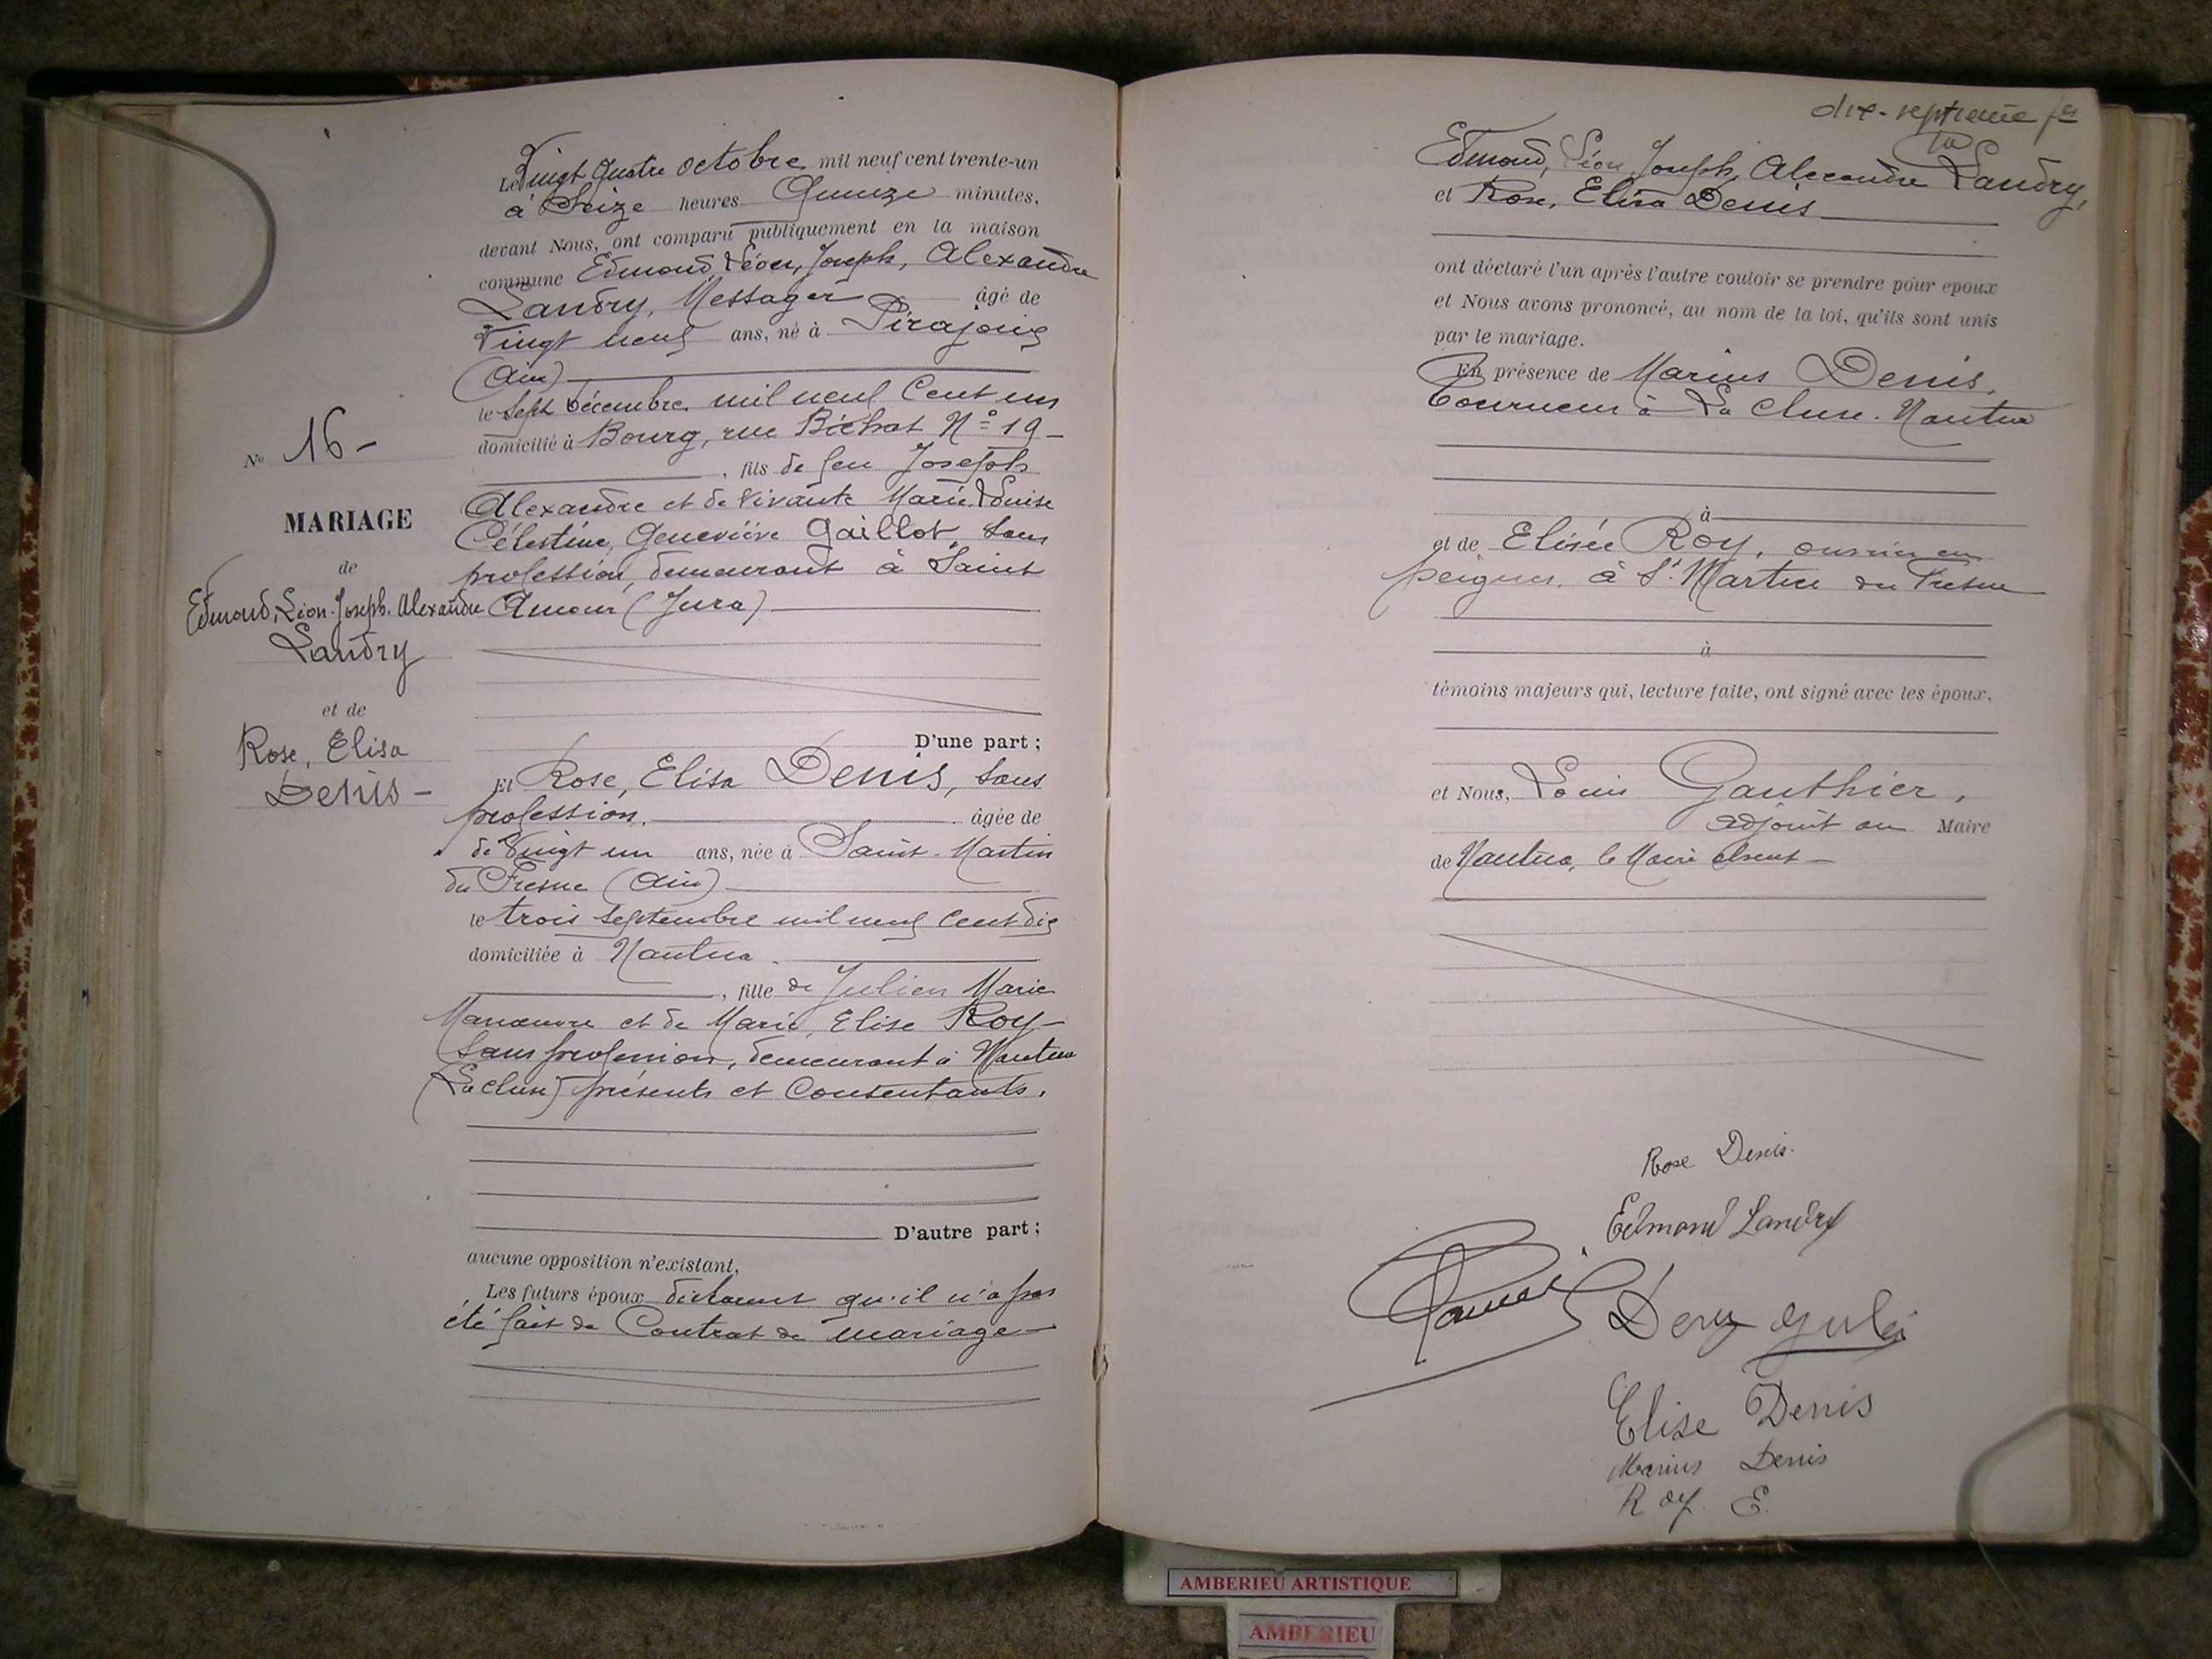 Le Vingt quatre octobre mil neuf cent trente-un
à Seize heures Quinze minutes,
devant Nous, ont comparu publiquement en la maison
commune Edmond, Léon, Joseph, Alexandre
Landry, Messager âgé de
Vingt neuf ans, né à Pirajoux
(Ain)
le sept Décembre mil neuf Cent un
domicilié à Bourg, rue Bichat N° 19 -
, fils de feu Joseph
Alexandre et de vivante Marie Louise
Célestine, Geneviève Gaillot, sans
profession, demeurant à Saint
Amour (Jura)
D'une part ;
N° 16 -
MARIAGE
de
Edmond, Léon, Joseph, Alexandre
Landry
et de
Rose, Elisa
Denis -
Et Rose, Elisa Denis, sans
profession. âgée de
de Vingt un ans, née à Saint-Martin
du Fresne (Ain)
le trois septembre mil neuf cent dix
domiciliée à Nantua.
, fille de Julien Marie
Manœuvre et de Marie, Elise Roy -
sans profession, demeurant à Nantua
(La Cluse) présents et Consentants.
D'autre part ;
aucune opposition n'existant,
Les futurs époux déclarent qu'il n'a pas
été fait de Contrat de mariage -
dix-septième
Edmond, Léon, Joseph, Alexandre Landry,
et Rose, Elisa Denis
ont déclaré l'un après l'autre vouloir se prendre pour époux
et Nous avons prononcé, au nom de la loi, qu'ils sont unis
par le mariage.
En présence de Marius Denis,
Tourneur à La Cluse. Nantua
à
et de Elisée Roy, ouvrier en
peignes, à St Martin du Fresne
à
témoins majeurs qui, lecture faite, ont signé avec les époux.
et Nous, Louis Gauthier,
adjoint au Maire
de Nantua, le Maire absent -
Rose Denis.
Edmond Landry
Elise Denis
Marius Denis
Roy. E.
AMBERIEU ARTISTIQUE
AMBERIEU